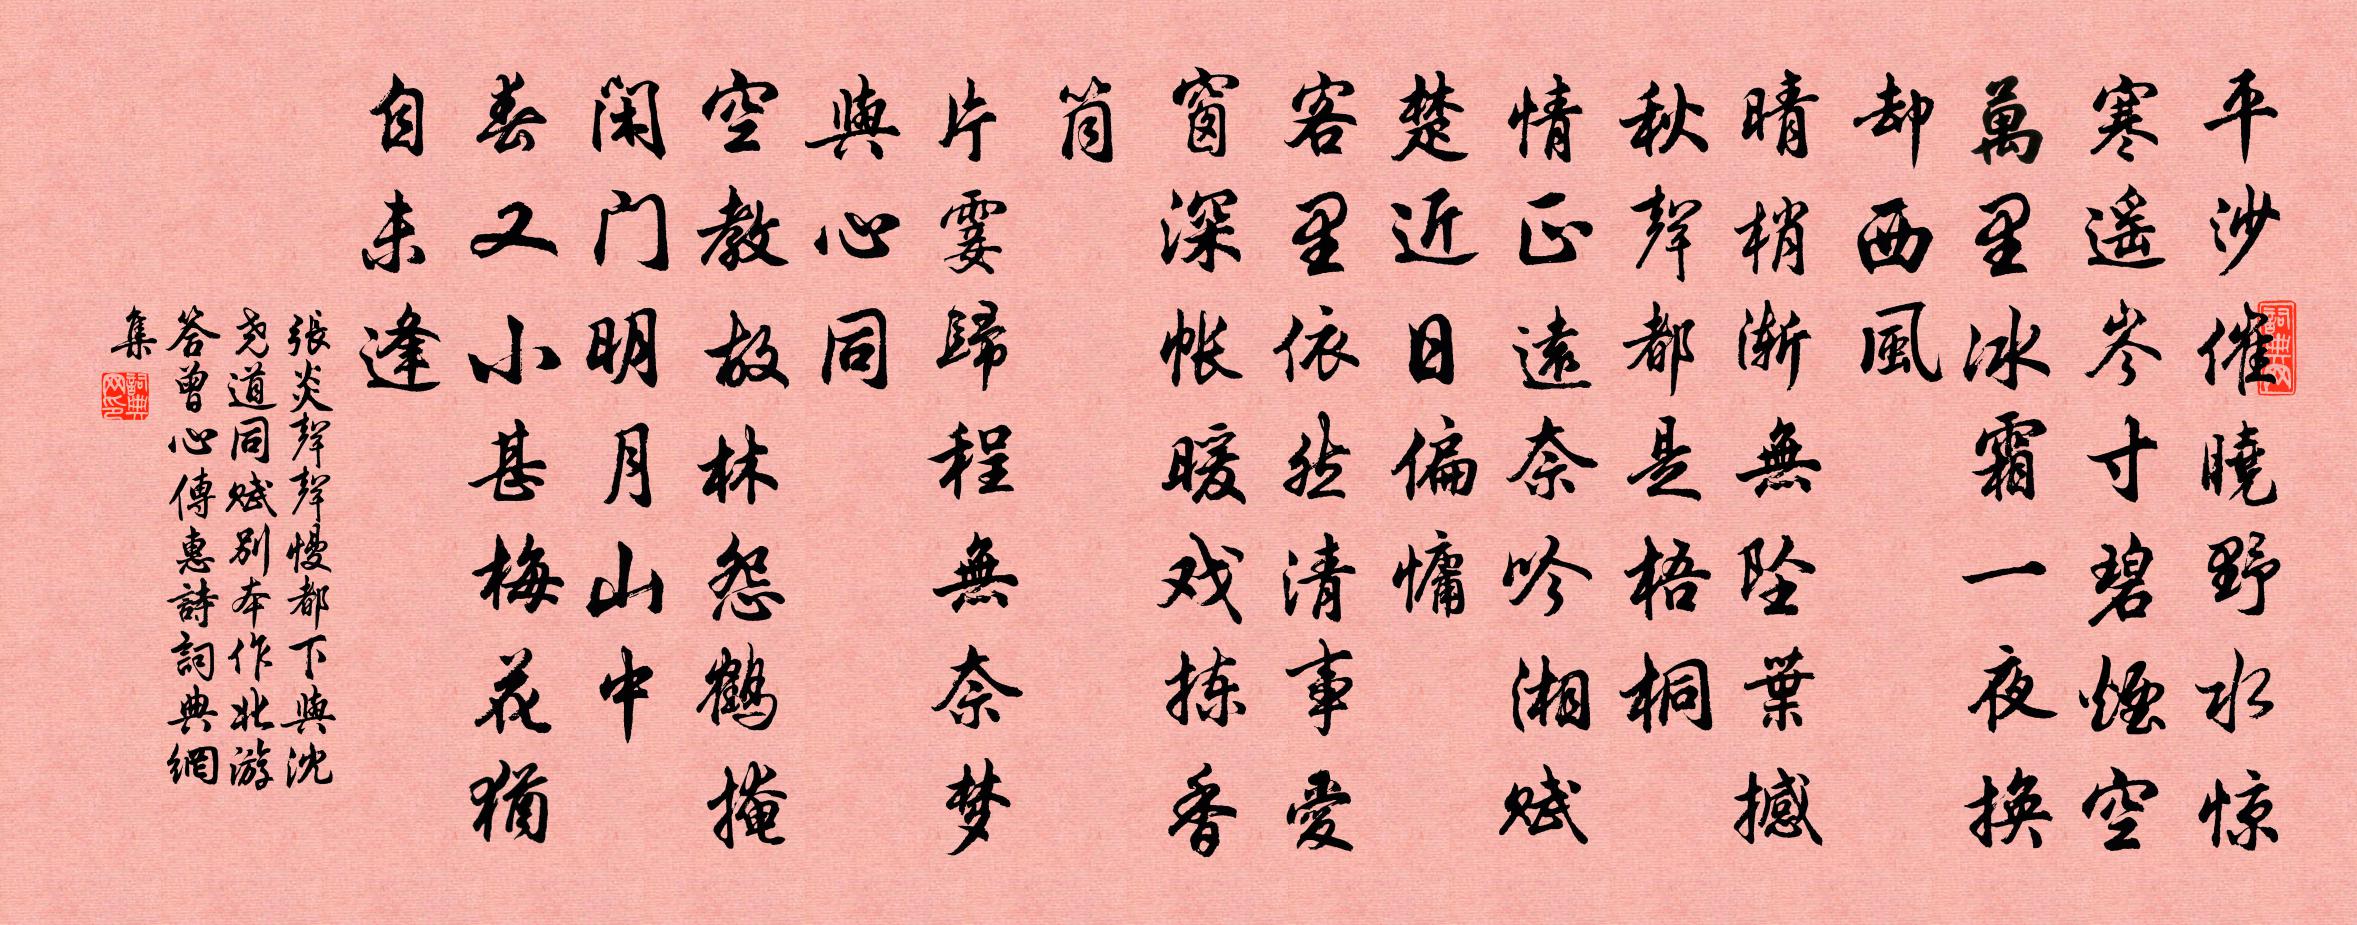 平沙催曉野水惊
寒遥岑寸碧煙空
萬里冰霜一夜換
却西風
晴梢渐無坠葉撼
秋聲都是梧桐
情正遠奈吟湘赋
楚近日偏慵
客里依然清事愛
窗深帐暖戏拣香
筒
片霎歸程無奈梦
與心同
空教故林怨鹤掩
闲门明月山中
春又小甚梅花猶
自未逢
張炎聲聲慢都下與沈
尧道同赋别本作北游
答曾心傳惠詩詞典網
集
詞典网
詞典网印